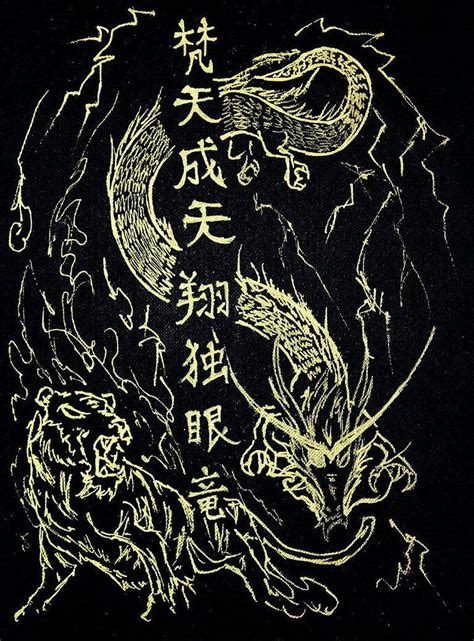 梵天成天翔独眼竜